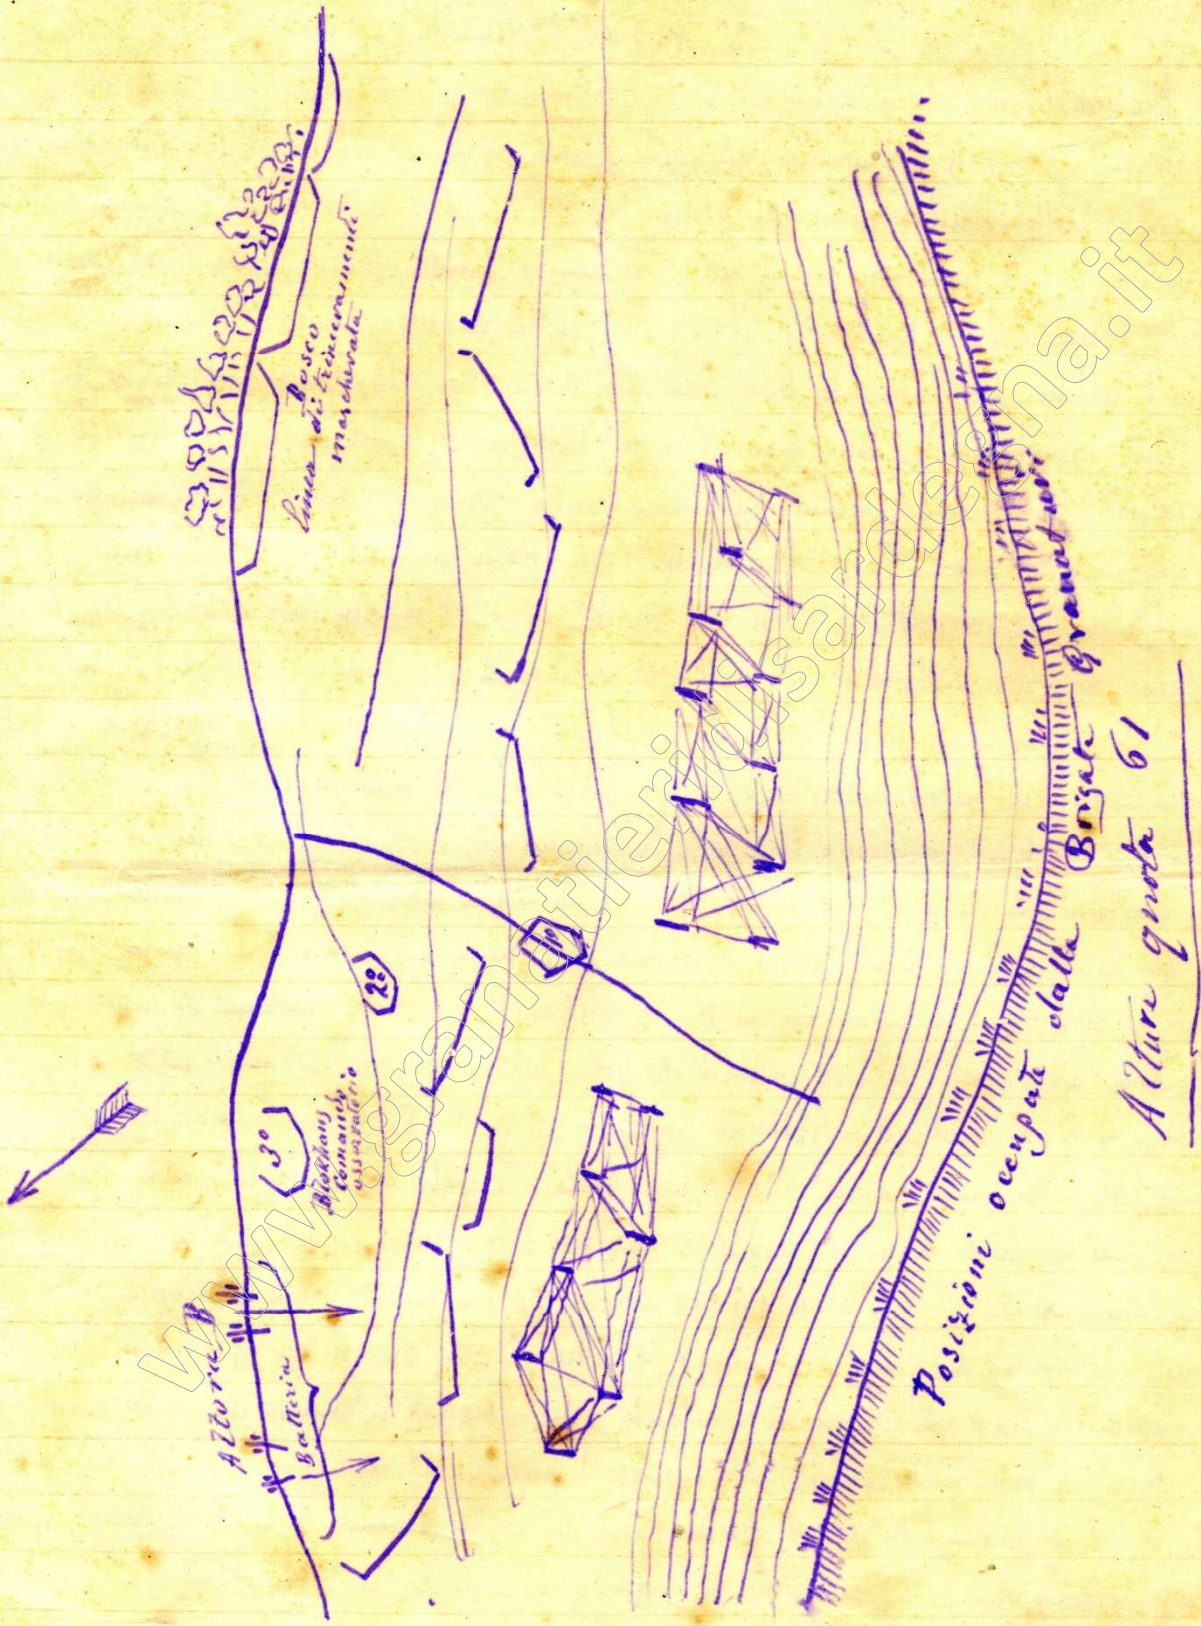 Altura B
Batteria
3º
Blokhaus
Comando
osservatorio
2º
1º
Bosco
linea di trinceramenti
mascherata
Posizioni occupate dalla Brigata Granatieri
Alture quota 61
www.granatieridisardegna.it